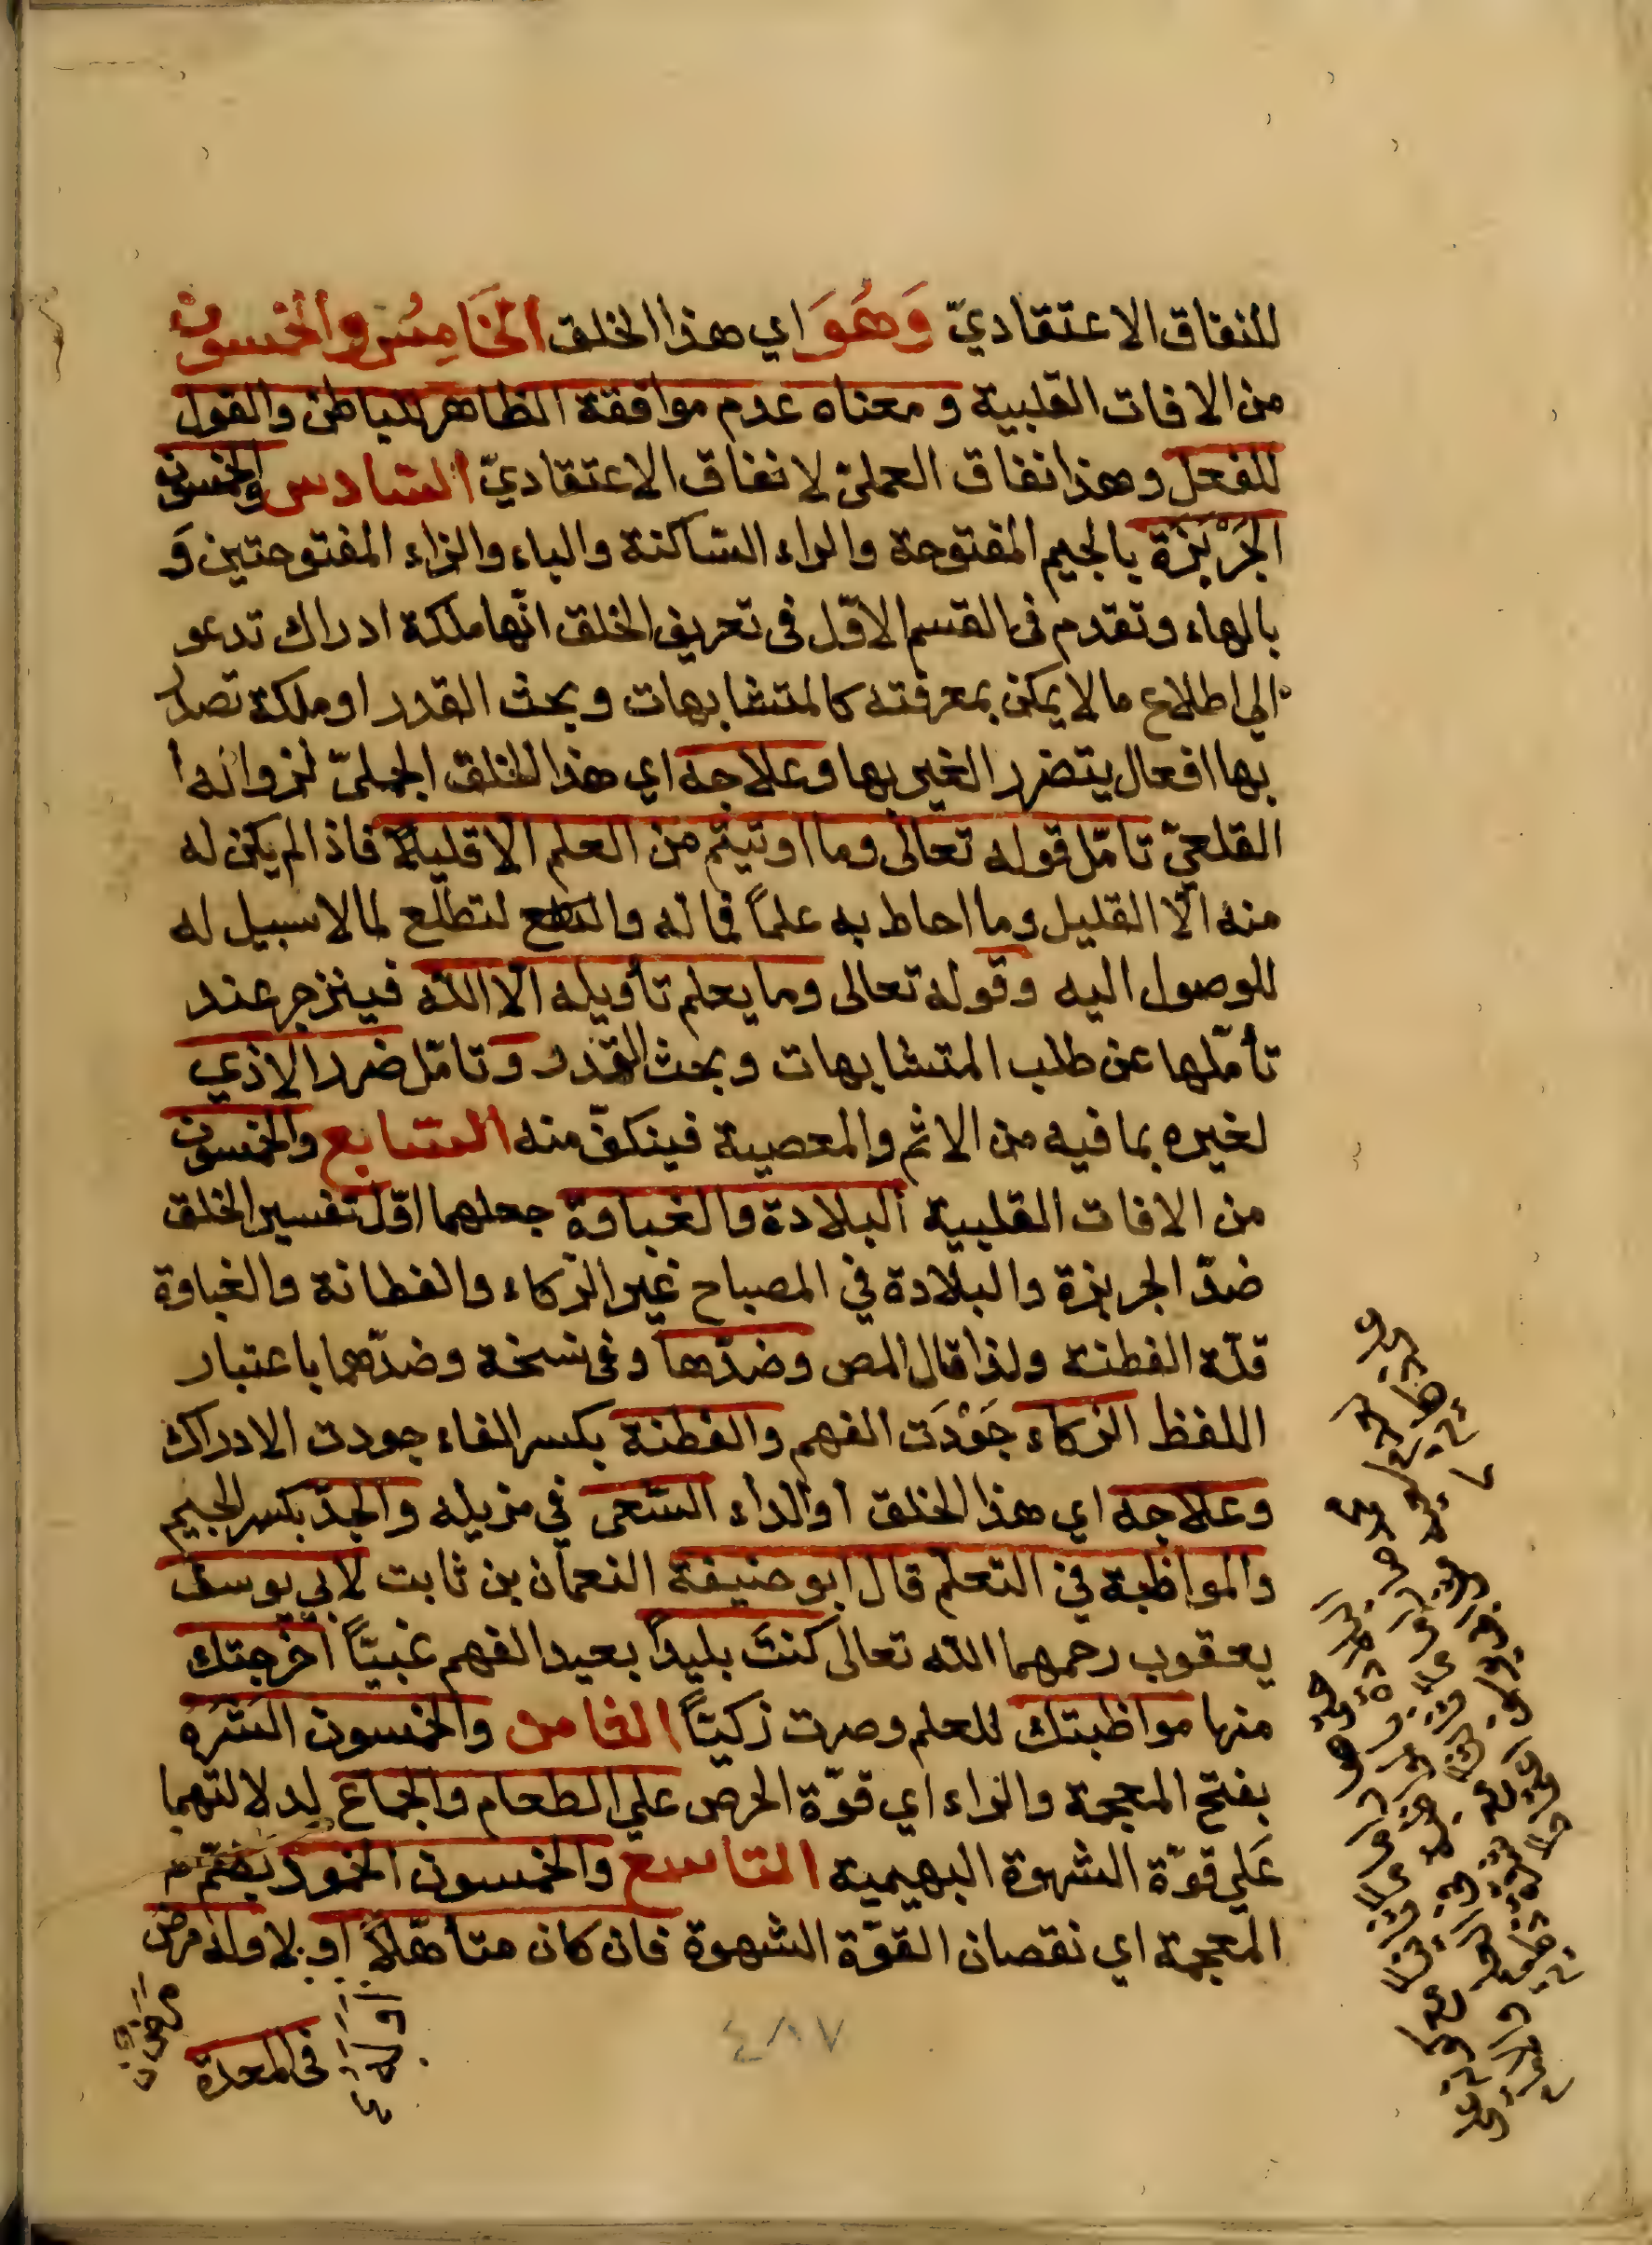 للنفاق الاعتقاديّ وَهُوَ اي هذا الخلق الخَامِسُ والخمسون
من الافات القلبية ومعناه عدم موافقة الظاهر للباطن والقول
للفعل وهذا نفاق العمليّ لا نفاق الاعتقاديّ السّادس والخمسون
الجَرْبَزَة بالجيم المفتوحة والراء السّاكنة والباء والزاء المفتوحتين وَ
بالهاء وتقدم فى القسم الاوّل فى تعريف الخلق انّها ملكة ادراك تدعو
الي اطلاع مالا يمكن بمعرفته كالمتشابهات وبحث القدر او ملكة تصدر
بها افعال يتضرر الغير بها وعلاجه اي هذا الخلق الجبليّ لزواله
القلعيّ تامّل قوله تعالى وما اوتيتم من العلم الا قليلاً فاذا لم يكن له
منه الّا القليل وما احاط به علماً فماله والتطلع لتطلّع لمالا سبيل له
للوصول اليه وقوله تعالى وما يعلم تأويله الّا اللّه فينزجر عند
تأمّلها عن طلب المتشابهات وبحث القدر وتامّل ضرر الاذي
لغيره بما فيه من الاثم والمعصية فينكفّ منه السّابع والخمسون
من الافات القلبية البلادة والغباوة جعلهما اوّل تفسير الخلق
ضدّ الجربزة والبلادة في المصباح غير الذّكاء والفطانة والغباوة
قلّة الفطنة ولذا قال المص وضدّها وفى نسخة وضدّهما باعتبار
اللفظ الذكاء جَوْدَت الفهم والفطنة بكسر الفاء جودت الادراك
وعلاجه اي هذا الخلق او الداء السّعى في مزيله والجدّ بكسر الجيم
والمواظبة في التعلّم قال ابو حنيفة النعمان بن ثابت لابي يوسف
يعقوب رحمهما اللّه تعالى كنتَ بليداً بعيد الفهم غبيّاً اخرجتك
منها مواظبتك للعلم وصرت زكيّاً الثامن والخمسون الشَرَهُ
بفتح المعجمة والراء اي قوّة الحرص علي الطعام والجماع لدلالتهما
عَلي قوّة الشهوة البهيمية التاسع والخمسون الخمود بضمّ
المعجمة اي نقصان القوّة الشهوة فان كان متأهّلاً او بلا وله مرض
فى المعدة
٤٨٧